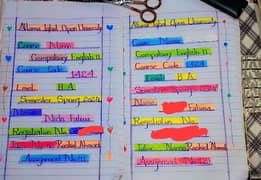 Allama Iqbal Open University
Course Name
Compulsory English II
Course Code 1424
Level B.A
Semester Spring
Name
Fatima
Registration No.
Tutor Name Rashid Ahmed
Assignment No.
Allama Iqbal Open University
Course Name
Compulsory English II
Course Code 1424
Level B.A
Semester Spring
Name
Fatima
Registration No.
Tutor Name Rashid Ahmed
Assignment No.